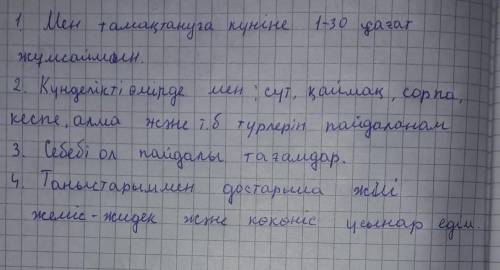 1. Мен тамақтануға күніне 1-30 сағат
жұмсаймын.
2. Күнделікті өмірде мен: сүт, қаймақ, сорпа,
кеспе, алма және т.б түрлерін пайдаланам
3. Себебі ол пайдалы тағамдар.
4. Таныстарыммен достарыма жиі
жеміс-жидек және көкөніс ұсынар едім.